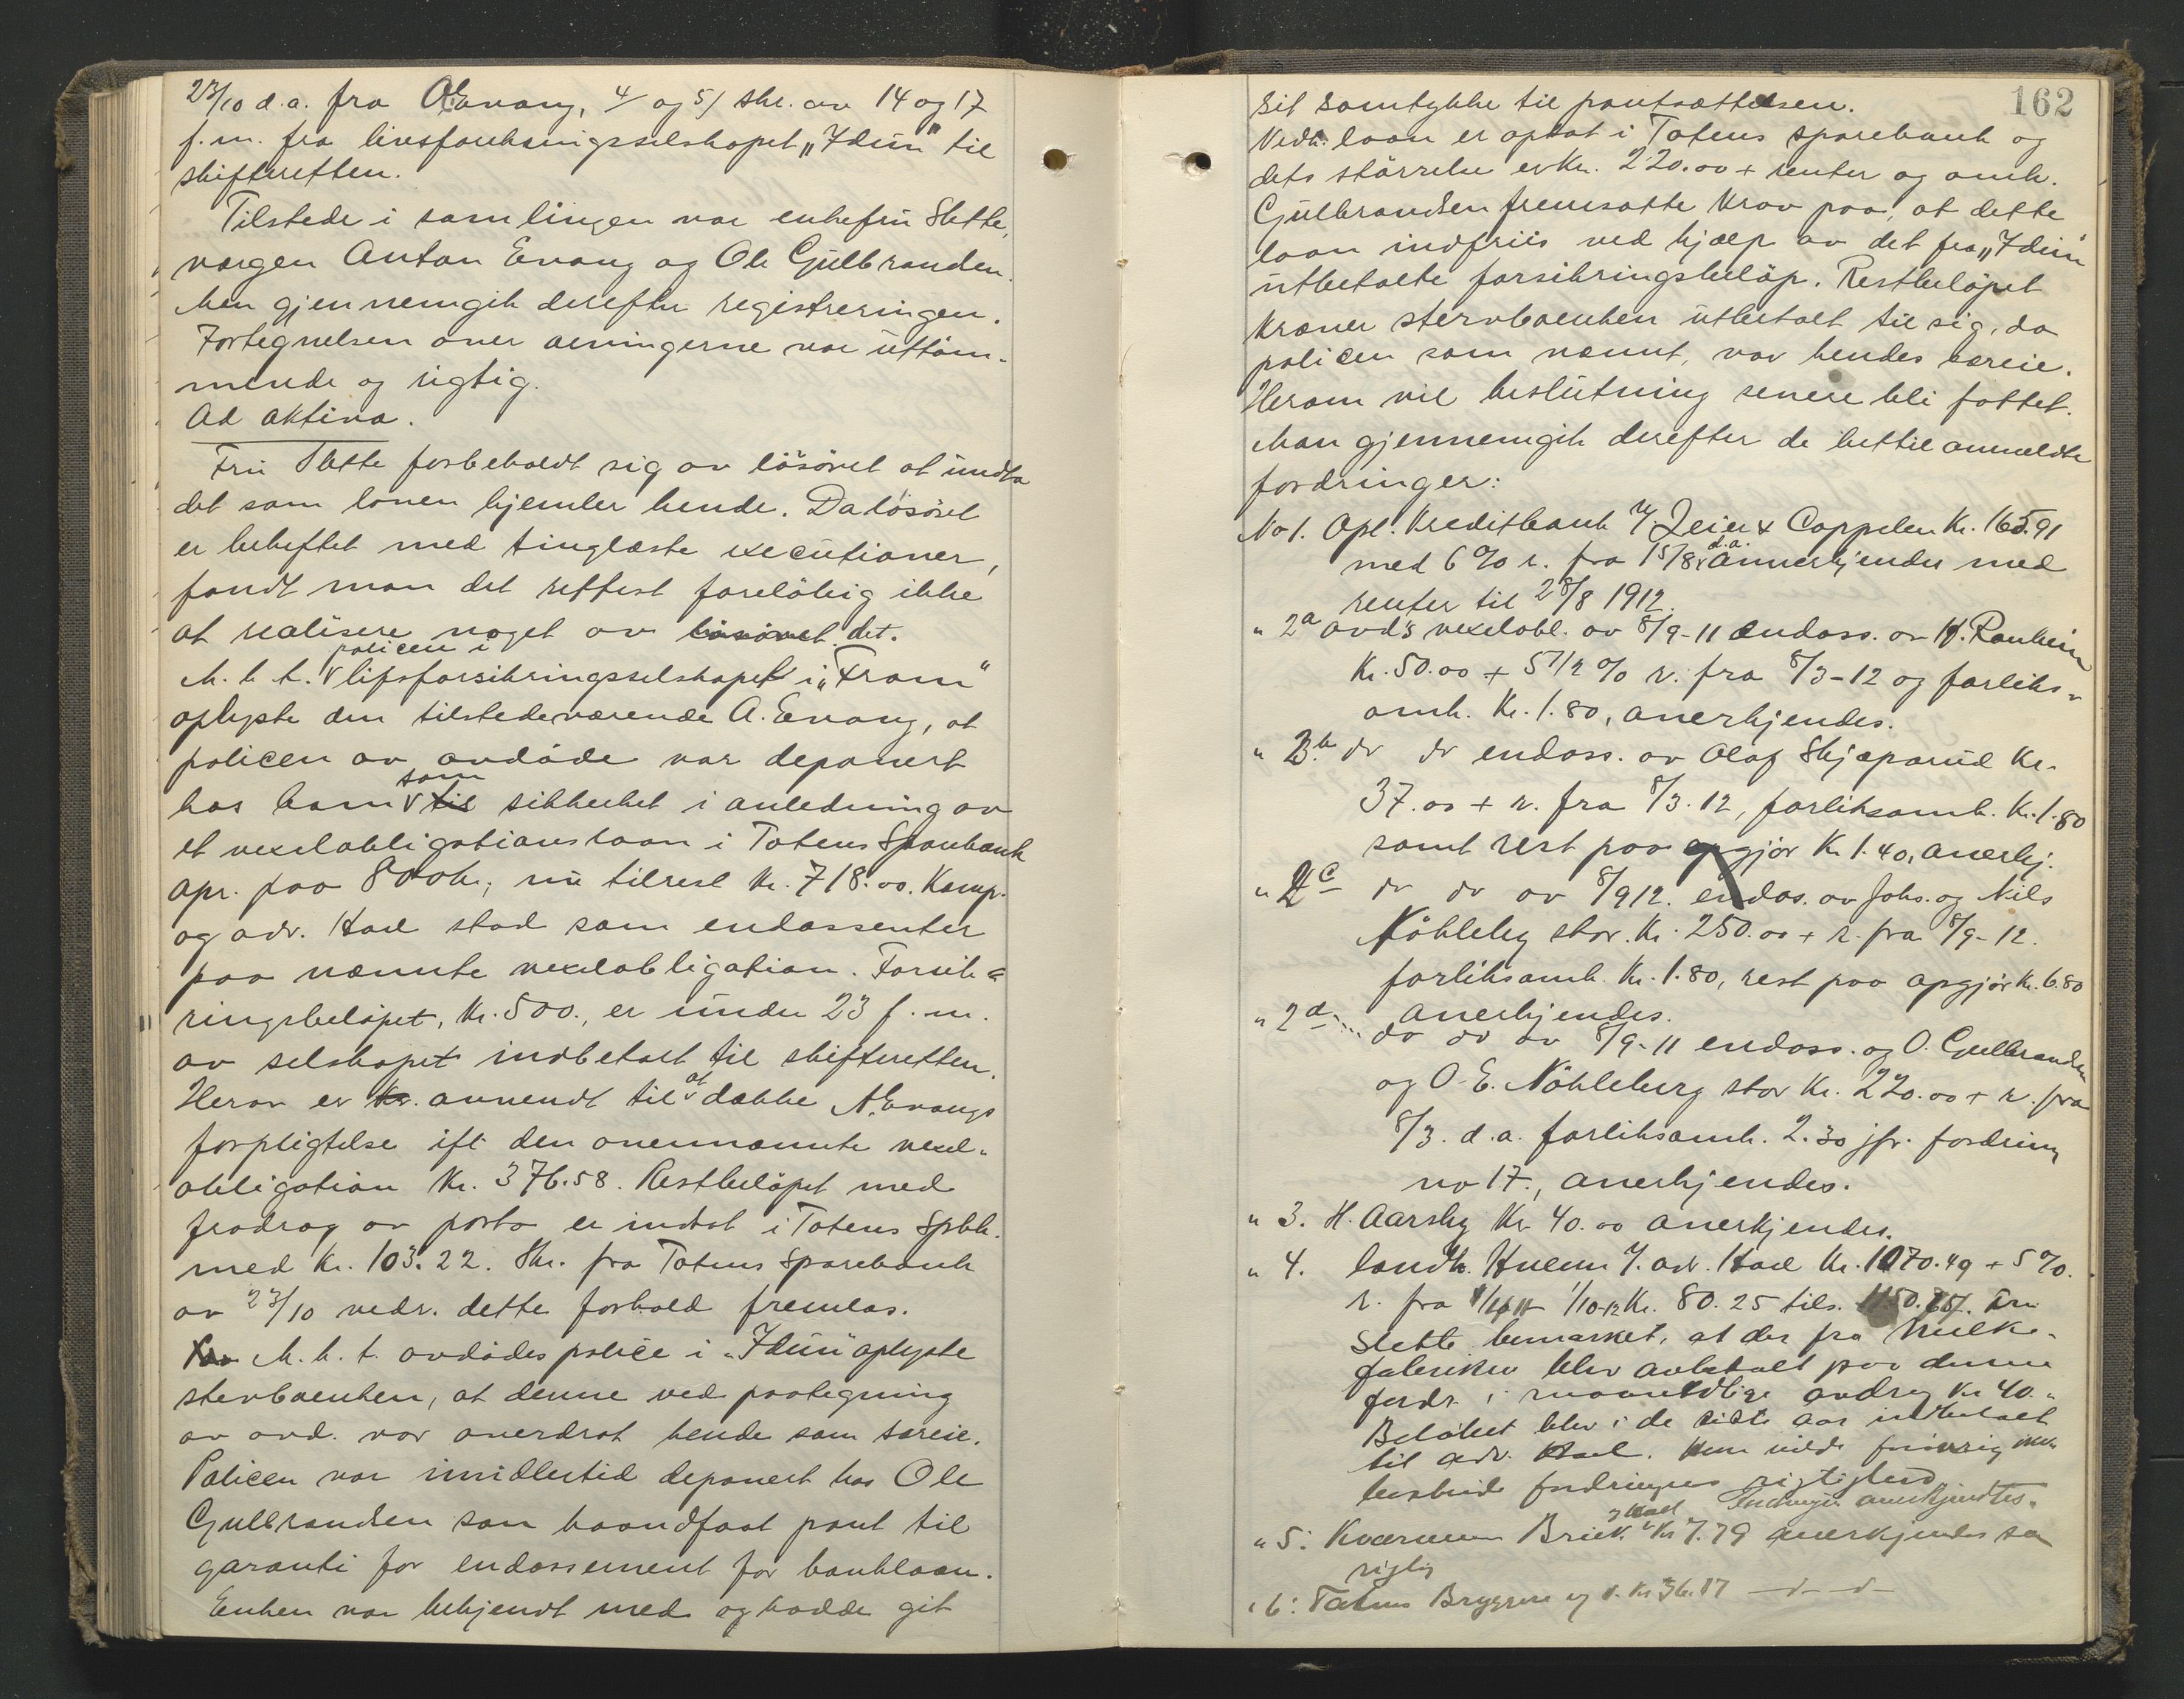 23/10 d.a. fra A. Evang, 4/ og 5/ skr. av 14 og 17
f.m. fra livsforsikringsselskapet "Idun" til
skifteretten.
Tilstede i samlingen var enkefru Slette,
vergen Anton Evang og Ole Gulbrandsen.
Man gjennemgik derefter registreringen.
Fortegnelsen over aeiningerne var uttöm-
mende og rigtig.
Ad aktiva.
Fru Slette forbeholdt sig av lösöret at undta
det som loven hjemler hende. Da lösöret
er beheftet med tinglæste executioner,
fandt man det rettest foreløbig ikke
at realisere noget av lösöret det.
M.h.t. policen i livsforsikringsselskapet i "Fram"
oplyste den tilstedeværende A. Evang, at
policen av avdöde var deponert
hos ham som til sikkerhet i anledning av
et vexelobligationslaan i Totens Sparebank
opr. paa 800 kr; nu tilrest kr. 718.00. Kamp.
og adv. Hael stod som endossenter
paa nævnte vexelobligation. Forsik-
ringsbeløpet, Kr. 500., er under 23 f.m.
av selskapet indbetalt til skifteretten.
Herav er kr. anvendt til at dække A. Evangs
forpligtelse ifl den ovennævnte vexel-
obligation Kr. 376.58. Restbeløpet med
fradrag av porto er indsat i Totens Spbk.
med Kr. 103.22. Skr. fra Totens Sparebank
av 23/10 vedr. dette forhold fremlas.
M.h.t. avdödes police i "Idun" oplyste
stervboenken, at denne ved paategning
av avd. var overdrat hende som særeie.
Policen var imidlertid deponert hos Ole
Gulbrandsen som haandfaat pant til
garanti for endossement for banklaan.
Enken var bekjendt med og hadde git
162
sit samtykke til pantsættelsen.
Vedk. laan er optat i Totens sparebank og
dets störrelse er kr. 220.00 + renter og omk.
Gulbrandsen fremsatte krav paa, at dette
laan indfriis ved hjælp av det fra "Idun"
utbetalte forsikringsbelöp. Restbelöpet
kræver stervboenken utbetalt til sig, da
policen som nævnt, var hendes særeie.
Herom vil beslutning senere bli fattet.
Man gjennemgik derefter de hittil anmeldte
fordringer:
No 1. Opl. Kreditbank v/ Jeier & Cappelen Kr. 165.91
med 6 % r. fra 15/8 d.a. Annerkjendes med
renter til 28/8 1912.
" 2a avd's vexelobl. av 8/9-11 endoss. av H. Rankein
Kr. 50.00 + 5 1/2 % r. fra 8/3-12 og forliks-
omk. Kr. 1.80, anerkjendes.
" 2b. do do endoss. av Olaf Skjæparud Kr.
37.00 + r. fra 8/3.12, forliksomk. Kr. 1.80
samt rest paa opgjör Kr 1.40, anerkj.
" 2c do do av 8/9 12. endos. av Johs. og Nils
Nökleby stor. Kr. 250.00 + r. fra 8/9-12.
forliksomk. Kr. 1.80, rest paa opgjör Kr. 6.80
anerkjendes.
" 2d do do av 8/9-11 endoss. og O. Gulbrandsen
og O. E. Nökleberg stor Kr. 220.00 + r. fra
8/3. d.a. forliksomk. 2.30 jfr. fordring
no 17., anerkjendes.
" 3. H. Aarsby Kr 40.00 anerkjendes.
" 4. landh. v/ adv. Hael Kr. 1070.49 + 5 %.
r. fra 1/10-12 Kr. 80.25 tils. 1150. Fru
Slette bemærket, at der fra Melke-
fabriken blev avbetalt paa denne
fordr. i maanedlige avdrag Kr 40.-
Belöbet blev i de siste aar indbetalt
til adv. Hael. Hun vilde forövrig ikke
bestride fordringens rigtighed.
Fordringen anerkjendtes.
" 5. Kværnum Bruk Kr 7.79 anerkjendes som
rigtig
" 6: Totens Bryggeri Kr 36.17 —d—d—